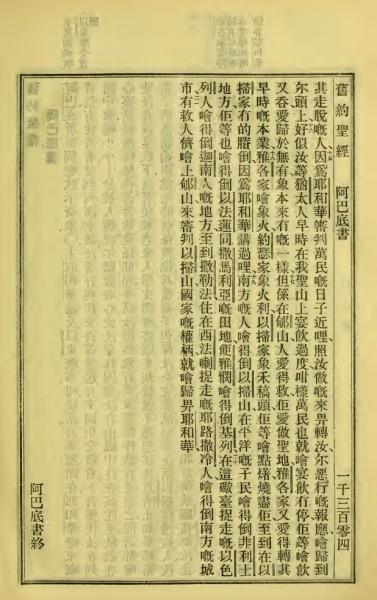 舊約聖經　阿巴底書　一千三百零四
其走脫嘅人、因爲耶和華審判萬民嘅日子近哩、照汝做嘅來畀轉汝、尔惡行嘅報應噲歸到
尔頭上、好似汝等猶太人早時在我聖山上宴飲過度、咁樣萬民也就噲宴飲有停、佢等噲飲
又吞、愛歸於無有、象本來冇嘅一樣、但係在郇山人愛得救、佢愛做聖地、雅各家又愛得轉其
早時嘅本業、雅各家噲象火、約瑟家象火利、以掃家象禾稿頭、佢等噲點燒盡佢、至到在以
掃家有的賸倒、因爲耶和華講過哩、南方嘅人噲得倒以掃山、在平洋嘅子民噲得倒非利士
地方、佢等也噲得倒以法蓮同撒馬利亞嘅田地、便雅憫噲得倒基列、在這礮臺捉走嘅以色
列人噲得倒迦南人嘅地方至到撒勒法、住在西法喇捉走嘅耶路撒冷人噲得倒南方嘅城
市、有救人儕噲上郇山來審判以掃山、國家嘅權柄就噲歸畀耶和華、
阿巴底書終